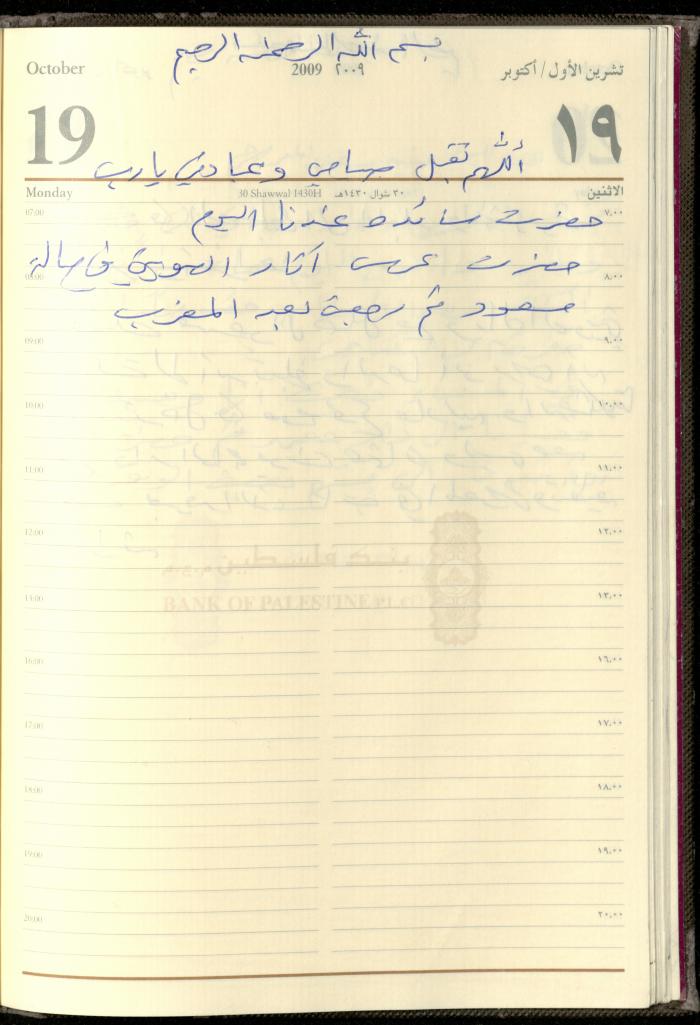 بسم الله الرحمن الرحيم
October 2009 ٢٠٠٩ تشرين الأول/أكتوبر
19 ١٩
اللهم تقبل صيامي وعبادتي يارب
Monday 30 Shawwal 1430H ٣٠ شوال ١٤٣٠هـ الاثنين
07:00 ٧.٠٠
حضرت سائده عندنا اليوم
حضرت عرس آثار في صالة
08:00 ٨.٠٠
مسعود ثم رجعت بعد المغرب
09:00 ٩.٠٠
10:00 ١٠.٠٠
11:00 ١١.٠٠
12:00 ١٢.٠٠
بنك فلسطين
BANK OF PALESTINE
١٣.٠٠
16:00 ١٦.٠٠
17:00 ١٧.٠٠
18:00 ١٨.٠٠
19:00 ١٩.٠٠
20:00 ٢٠.٠٠